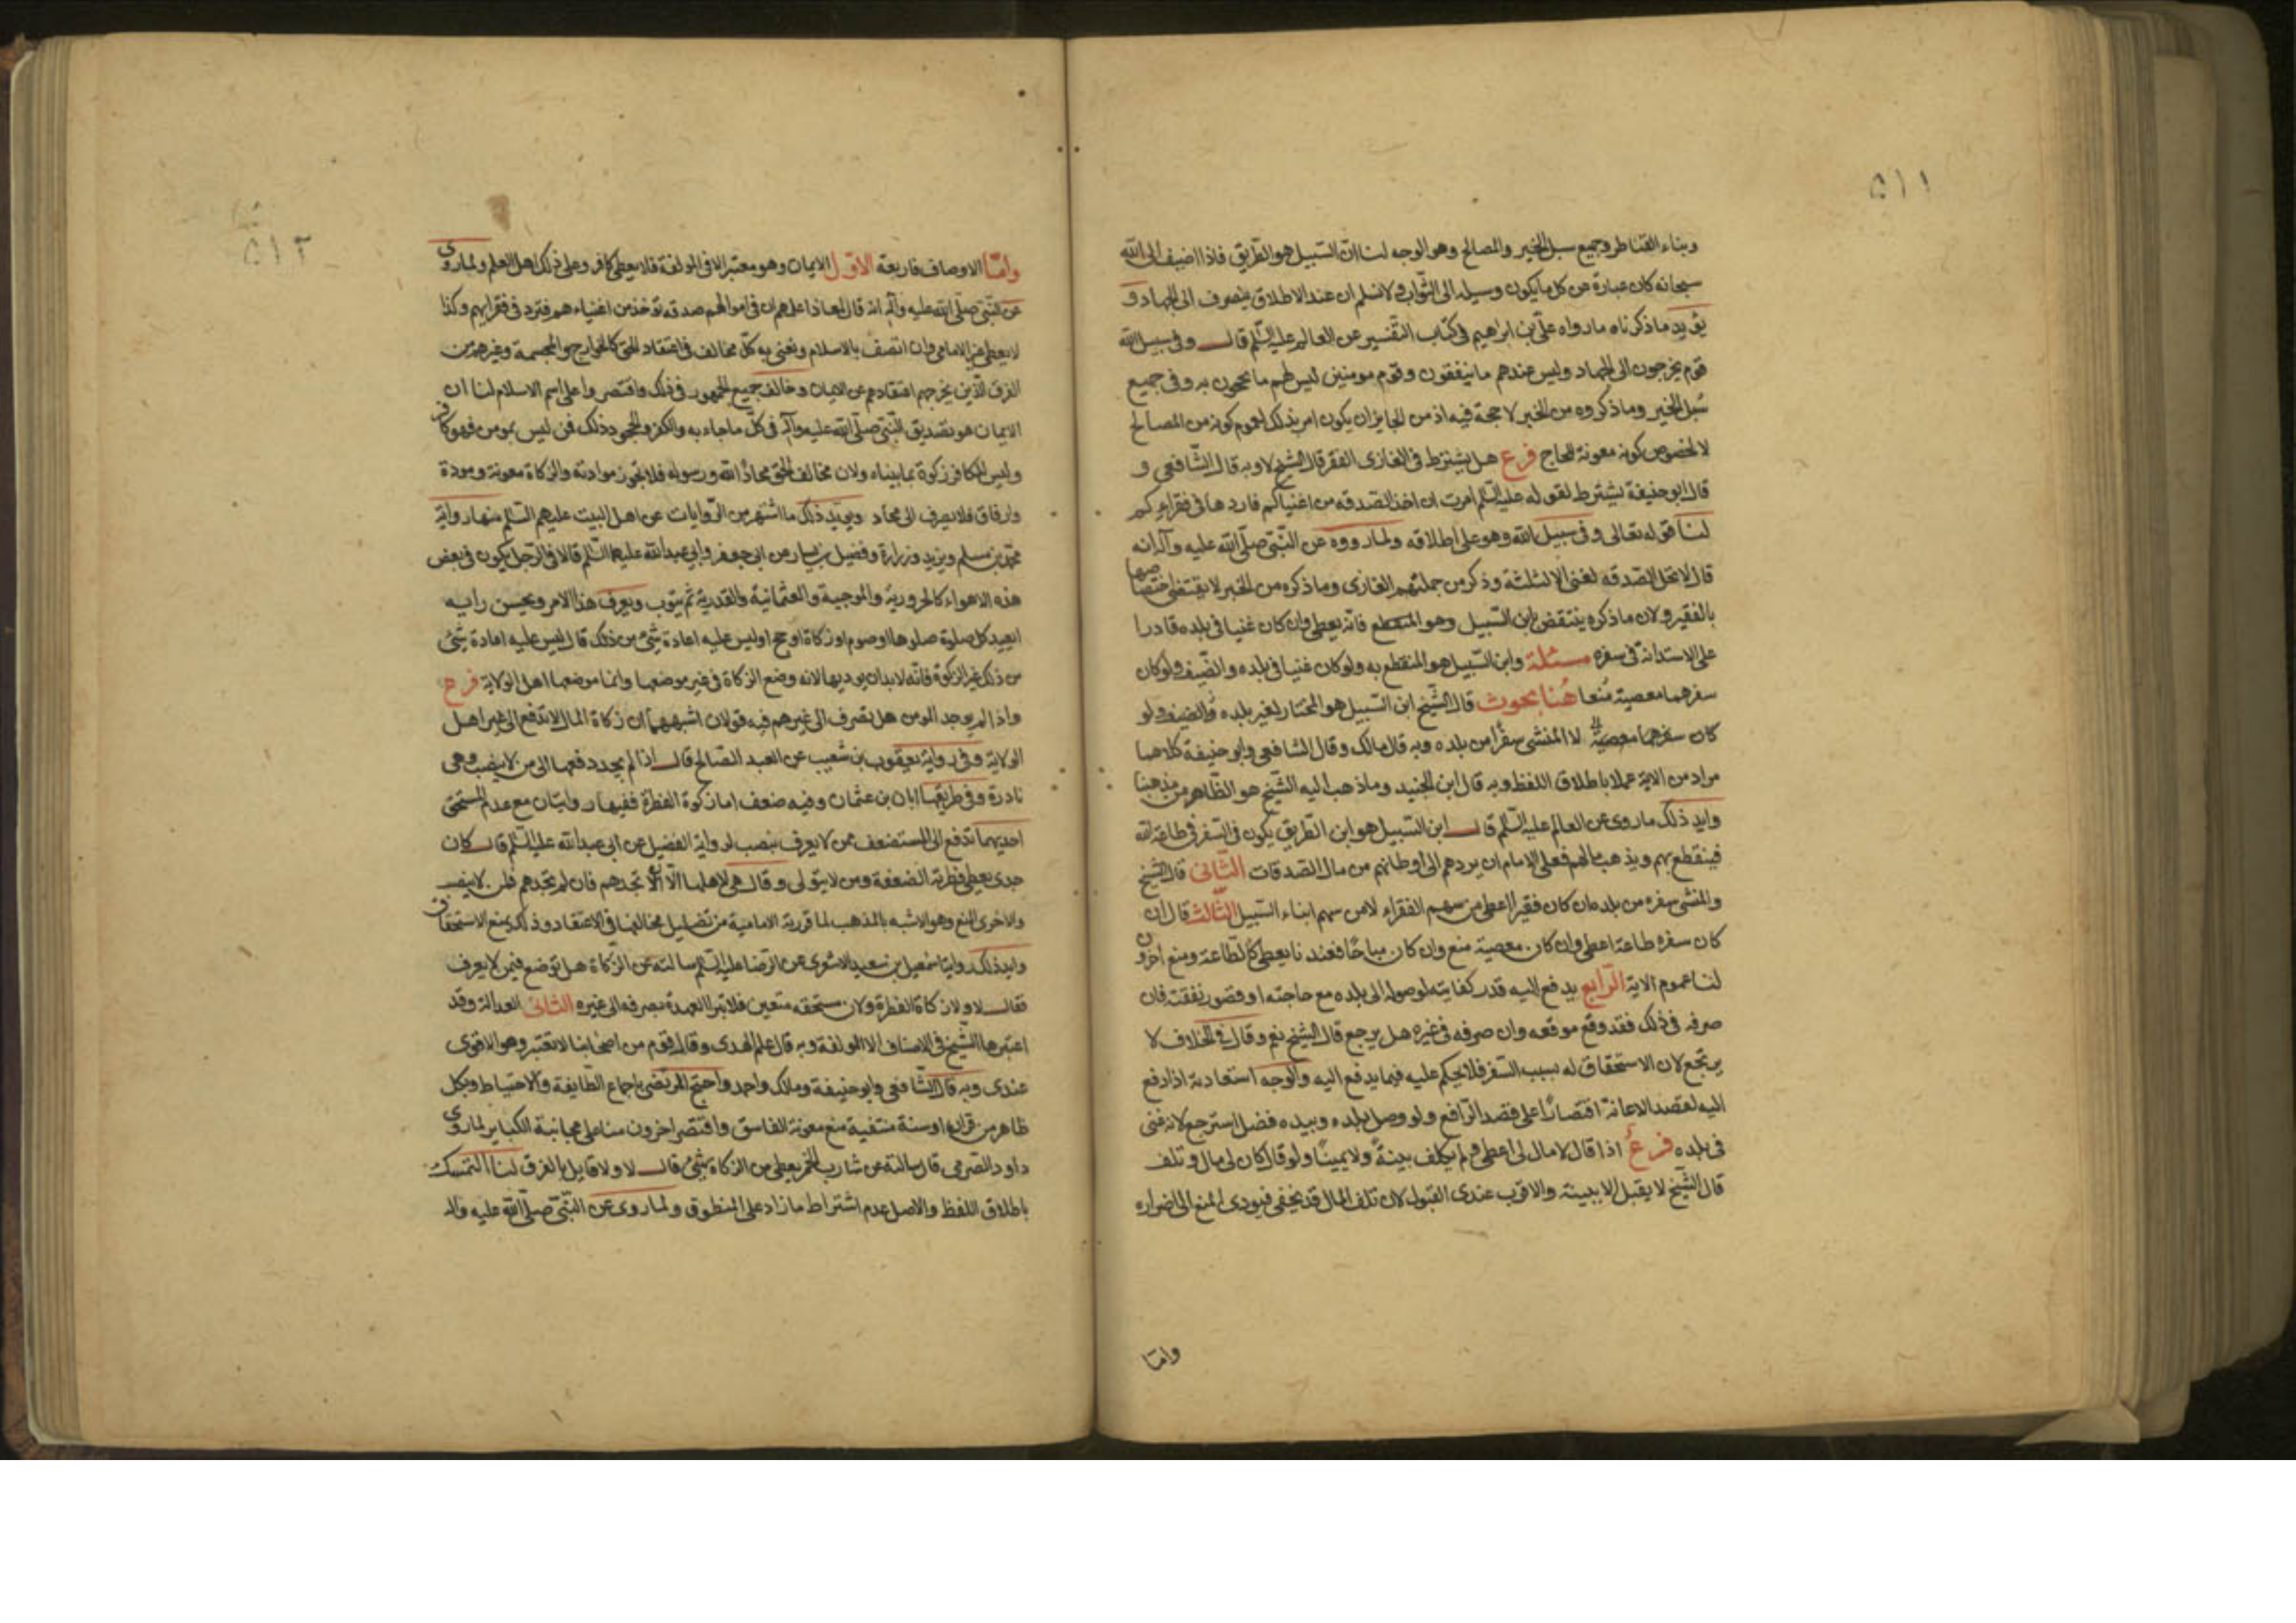 ٥١١
وبناء القناطر وجميع سبل الخير والمصالح وهو الوجه لنا ان السبيل هو الطريق فاذا اضيف الى الله
سبحانه كان عبارة عن كل ما يكون وسيلة الى الثواب ولا نسلم ان عند الاطلاق ينصرف الى الجهاد و
يؤيد ما ذكرناه ما رواه علي بن ابراهيم في كتاب التفسير عن العالم عليه السلم قال وفي سبيل الله
قوم يخرجون الى الجهاد وليس عندهم ما ينفقون وقوم مومنين ليس لهم ما يحجون به وفي جميع
سُبل الخير وما ذكروه من الخبر لا حجة فيه اذ من الجايز ان يكون امر بذلك لعموم كونه من المصالح
لا لخصوص كونه معونة للحاج فرع هل يشترط في الغازى الفقر قال الشيخ لا وبه قال الشافعي و
قال ابو حنيفة يشترط لقوله عليه السلم امرت ان اخذ الصدقه من اغنياكم فاردها في فقراءكم
لنا قوله تعالى وفي سبيل الله وهو على اطلاقه ولما رووه عن النبي صلى الله عليه وآله انه
قال لا تحل الصدقه لغنى الا لثلثة وذكر من جملتهم الغازى وما ذكره من الخبر لا يقتضى اختصاصها
بالفقير ولان ما ذكره ينتقض بابن السبيل وهو المنقطع فانه يعطى وان كان غنيا في بلده قادرا
على الاستدانة في سفره مسئلة وابن السبيل هو المنقطع به ولو كان غنيا في بلده والضيف ولو كان
سفرهما معصية مُنعا هُنا بحوث قال الشيخ ابن السبيل هو المجتاز لغير بلده والضيف ولو
كان سفرهما معصية لا المنشى سفرًا من بلده وبه قال مالك وقال الشافعي وابو حنيفة كلاهما
مراد من الاية عملا باطلاق اللفظ وبه قال ابن الجنيد وما ذهب اليه الشيخ هو الظاهر من مذهبنا
وايد ذلك ما روى عن العالم عليه السلم قال ابن السبيل هو ابن الطريق يكون في السفر في طاعة الله
فينقطع بهم ويذهب مالهم فعلى الامام ان يردهم الى اوطانهم من مال الصدقات الثانى قال الشيخ
والمنشى سفره من بلده ان كان فقيرا اعطى من سهم الفقراء لا من سهم ابناء السبيل الثالث قال ان
كان سفره طاعة اعطى وان كان معصية منع وان كان مباحًا فعندنا يعطى كالطاعة ومنع اخرون
لنا عموم الاية الرابع يدفع اليه قدر كفايته لوصوله الى بلده مع حاجته او قصور نفقته فان
صرفه في ذلك فقد وقع موقعه وان صرفه في غيره هل يرجع قال الشيخ نعم وقال في الخلاف لا
يرتجع لان الاستحقاق له بسبب السفر فلا يحكم عليه فيما يدفع اليه والوجه استعادته اذا دفع
اليه لقصد الاعانة اقتصارًا على قصد الدافع ولو وصل بلده وبيده فضل استرجع لانه غنى
في بلده فرع اذا قال لا مال لى اعطى ولم يكلف بينةً ولا يمينًا ولو قال كان لى مال وتلف
قال الشيخ لا يقبل الا ببينة والاقرب عندى القبول لان تلف المال قد يخفى فيودى المنع الى اضراره
واما
٥١٢
واما الاوصاف فاربعة الاول الايمان وهو معتبر الا في المولفة فلا يعطى كافر وعلى ذلك اهل العلم ولما روى
عن النبي صلى الله عليه وآله انه قال لمعاذ اعلمهم ان في اموالهم صدقه تؤخذ من اغنياءهم فترد في فقرايهم وكذا
لا يعطى غير الامامى وان اتصف بالاسلام ونعنى به كل مخالف في اعتقاد الحق كالخوارج والمجسمة وغيرهم من
الفرق الذين يخرجهم اعتقادهم عن الايمان وخالف جميع الجمهور في ذلك واقتصروا على اسم الاسلام لنا ان
الايمان هو تصديق النبي صلى الله عليه وآله في كل ما جاء به والكفر جحود ذلك فمن ليس بمومن فهو كافر
وليس للكافر زكوة بما بيناه ولان مخالف الحق محادّ الله ورسوله فلا تجوز موادته والزكاة معونة ومودة
وارفاق فلا يصرف الى محاد ويؤيد ذلك ما اشتهر من الروايات عن اهل البيت عليهم السلم منها رواية
محمد بن مسلم وبريد وزرارة وفضيل بن يسار عن ابي جعفر وابي عبدالله عليهما السلم قالا في الرجل يكون في بعض
هذه الاهواء كالحرورية والمرجية والعثمانية والقدرية ثم يتوب ويعرف هذا الامر ويحسن رايه
ايعيد كل صلوة صلوها او صوم او زكاة او حج او ليس عليه اعادة شئ من ذلك قال ليس عليه اعادة شئ
من ذلك غير الزكوة فانه لا بد ان يوديها لانه وضع الزكاة في غير موضعها وانما موضعها اهل الولاية فرع
واذا لم يوجد المومن هل تصرف الى غيرهم فيه قولان اشبههما ان زكاة المال لا تدفع الى غير اهل
الولاية وفي رواية يعقوب بن شعيب عن العبد الصالح قال اذا لم يجد دفعها الى من لا ينصب وهى
نادرة وفي طريقها ابان بن عثمان وفيه ضعف اما زكوة الفطرة ففيها روايتان مع عدم المستحق
احديهما تدفع الى المستضعف ممن لا يعرف بنصب لرواية الفضيل عن ابى عبدالله عليه السلم قال كان
جدى يعطى فطرته الضعفة ومن لا يتولى وقال هى لاهلها الا ان لا تجدهم فان لم تجدهم فلمن لا ينصب
والاخرى المنع وهو الاشبه بالمذهب لما قررته الامامية من تضليل مخالفها في الاعتقاد وذلك يمنع الاستحقاق
وايد ذلك رواية اسمعيل بن سعد الاشعرى عن الرضا عليه السلم سالته عن الزكاة هل توضع فيمن لا يعرف
فقال لا ولا زكاة الفطرة ولان مستحقه متعين فلا تبرا العهدة بصرفه الى غيره الثانى العدالة وقد
اعتبرها الشيخ في الاصناف الا المولفة وبه قال علم الهدى وقال قوم من اصحابنا لا تعتبر وهو الاقوى
عندى وبه قال الشافعى وابو حنيفة ومالك واحمد واحتج المرتضى باجماع الطايفة والاحتياط وبكل
ظاهر من قران او سنة مقتضية منع معونة الفاسق واقتصر اخرون منا على مجانبة الكباير لما روى
داود الصرمى قال سالته عن شارب الخمر يعطى من الزكاة شئ قال لا ولا قايل بالفرق لنا التمسك
باطلاق اللفظ والاصل عدم اشتراط ما زاد على المنطوق ولما روى عن النبي صلى الله عليه واله